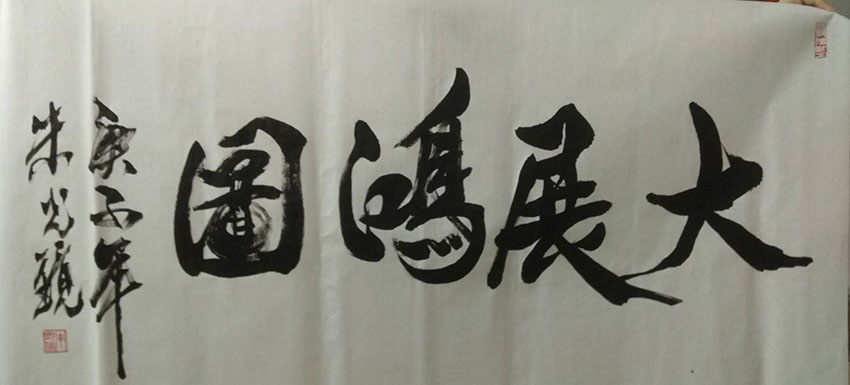 大展鴻圖
庚子年
朱光鏡